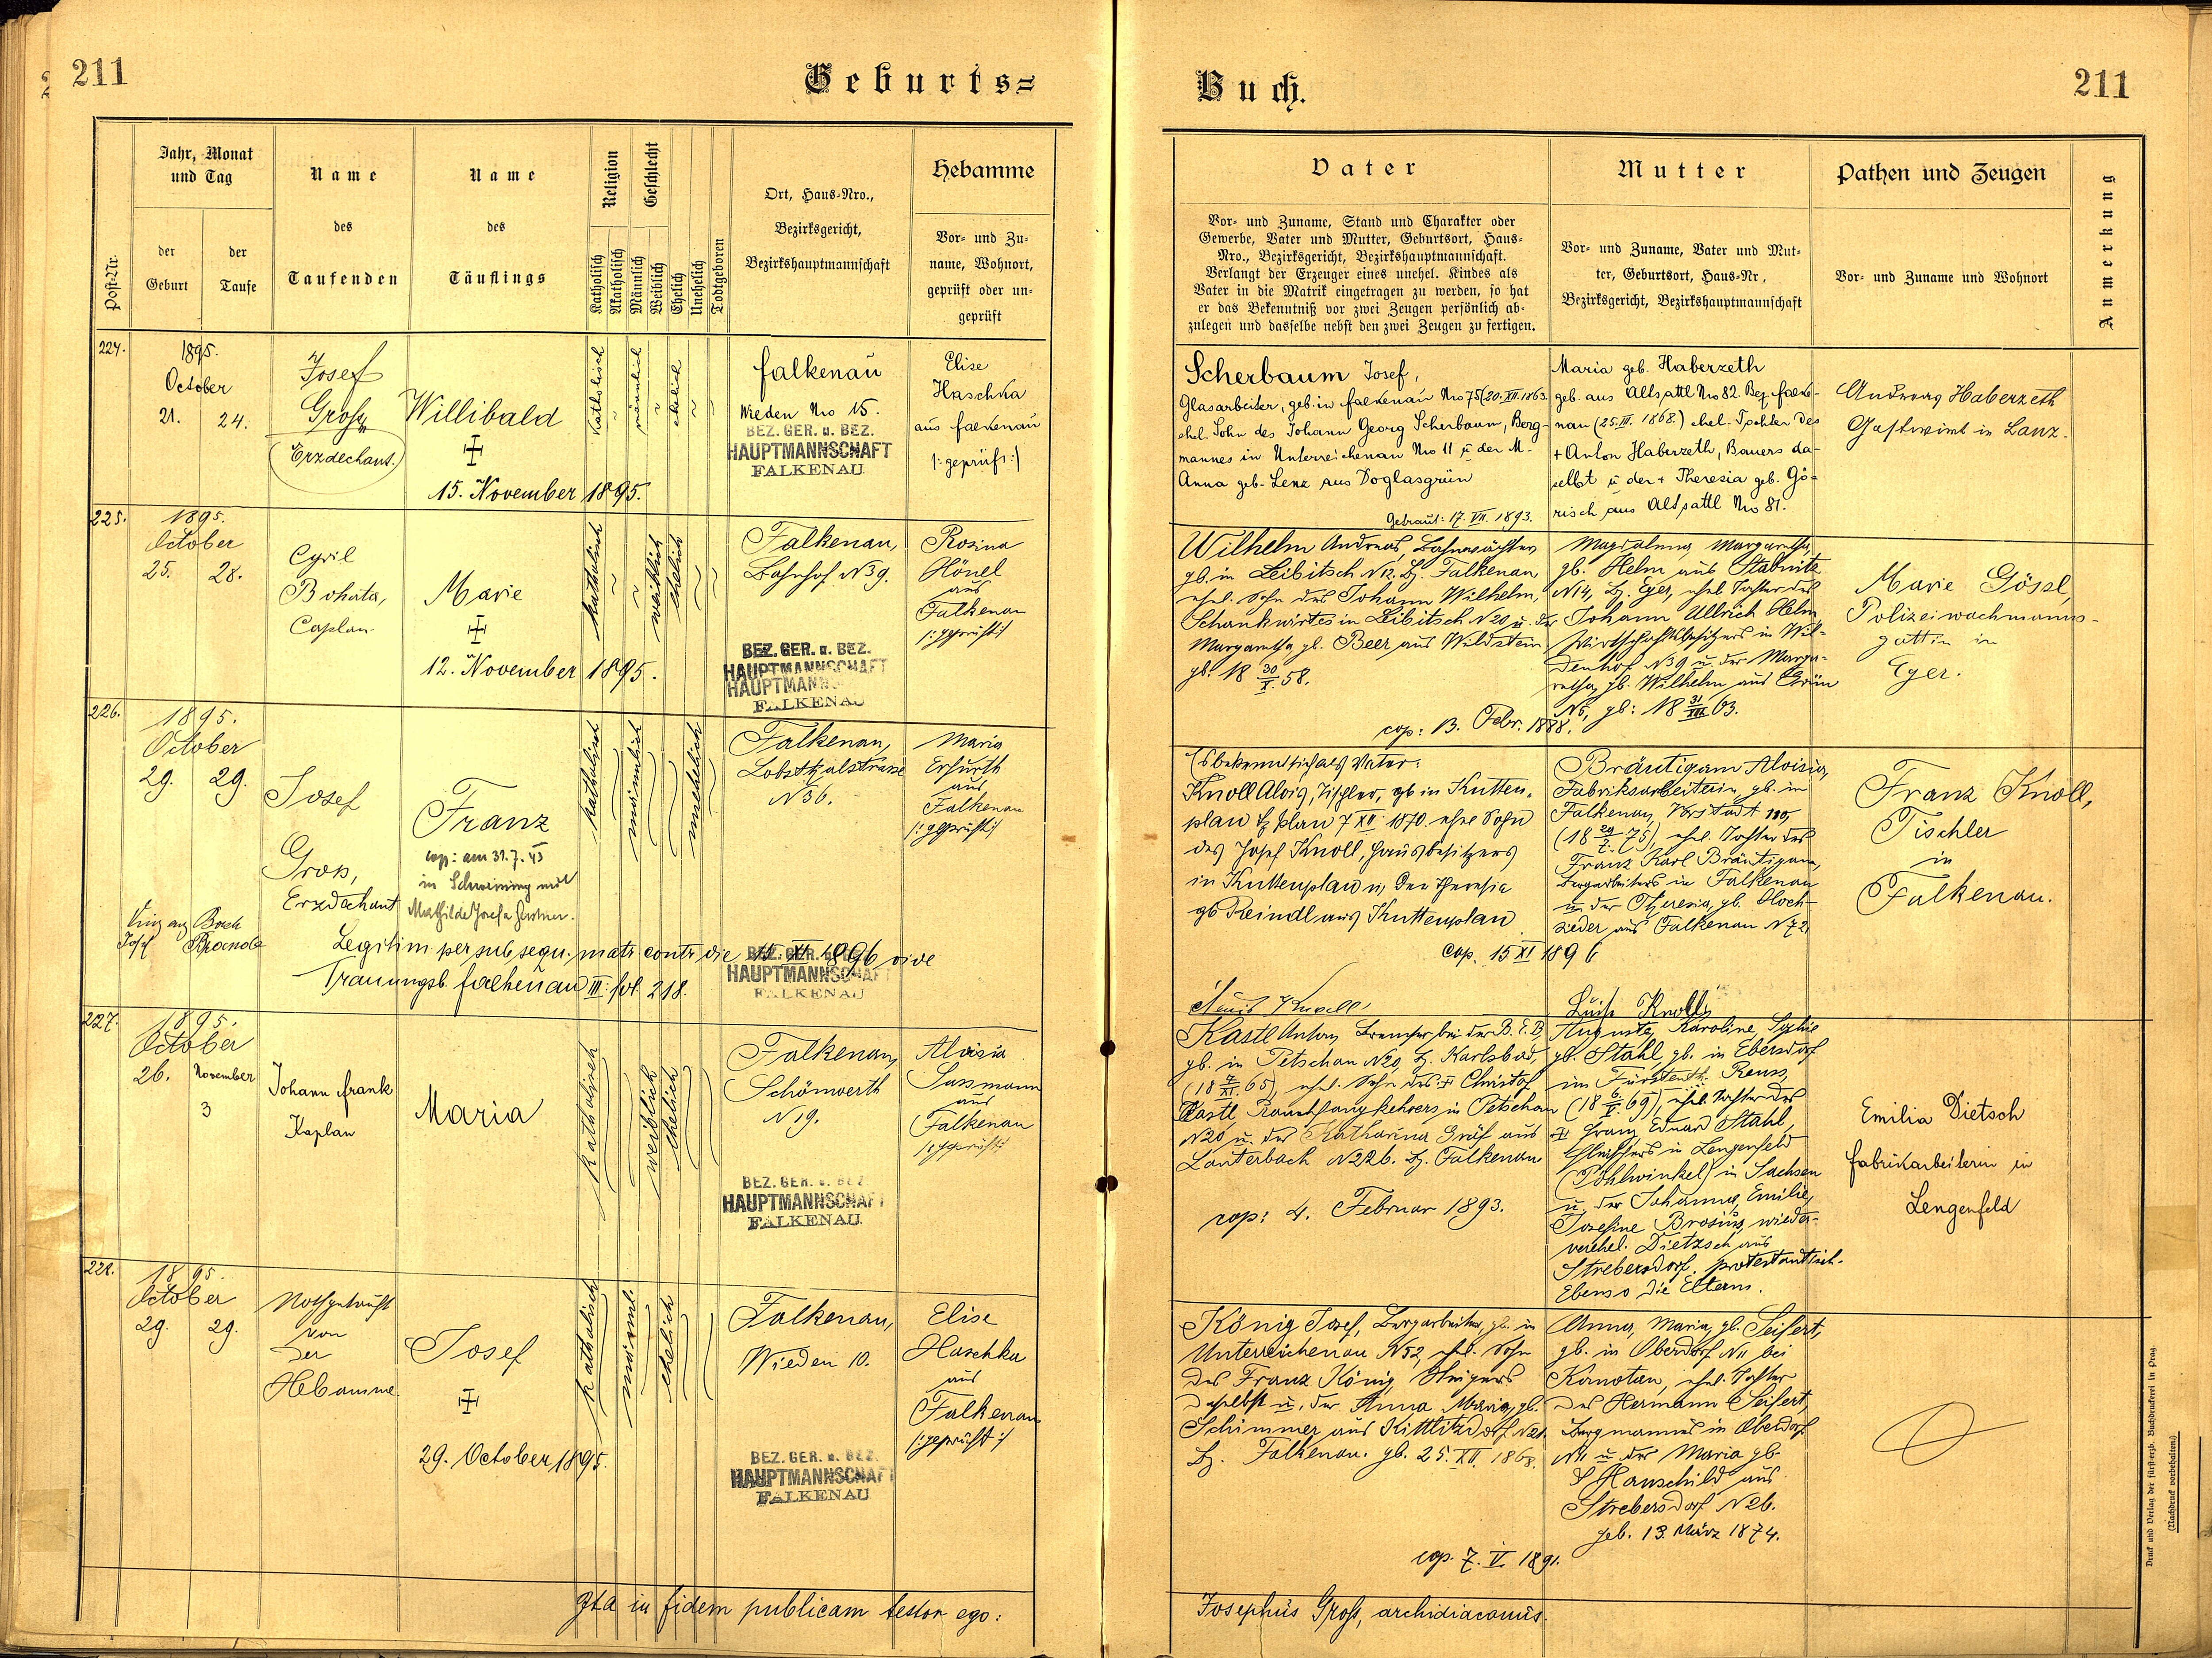 211
Geburts=
Buch.
211
Post-Nr.
Jahr, Monat
und Tag
der
Geburt
der
Taufe
Name
des
Taufenden
Name
des
Täuflings
Religion
Katholisch
Akatholisch
Geschlecht
Männlich
Weiblich
Ehelich
Unehelich
Todtgeboren
Ort, Haus-Nro.,
Bezirksgericht,
Bezirkshauptmannschaft
Hebamme
Vor- und Zu-
name, Wohnort,
geprüft oder un-
geprüft
Vater
Vor- und Zuname, Stand und Charakter oder
Gewerbe, Vater und Mutter, Geburtsort, Haus-
Nro., Bezirksgericht, Bezirkshauptmannschaft.
Verlangt der Erzeuger eines unehel. Kindes als
Vater in die Matrik eingetragen zu werden, so hat
er das Bekenntniß vor zwei Zeugen persönlich ab-
zulegen und dasselbe nebst den zwei Zeugen zu fertigen.
Mutter
Vor- und Zuname, Vater und Mut-
ter, Geburtsort, Haus-Nr,
Bezirksgericht, Bezirkshauptmannschaft
Pathen und Zeugen
Vor- und Zuname und Wohnort
Anmerkung
224.
1895.
October
21. 24.
Josef
Gross
Erzdechant.
Willibald
15. November 1895.
katholisch
männlich
ehelich
Falkenau
Wieden No 15.
BEZ. GER. u. BEZ.
HAUPTMANNSCHAFT
FALKENAU
Elise
Haschka
aus Falkenau
/:geprüft:/
Scherbaum Josef,
Glasarbeiter, geb. in Falkenau No 75 (20. XII. 1863.
ehel. Sohn des Johann Georg Scherbaum, Berg-
mannes in Unterreichenau No 11 u. der M.
Anna geb. Lenz aus Doglasgrün
Getraut: 17. VII. 1893.
Maria geb. Haberzeth
geb. aus Altsattl No 82. Bez. Falke-
nau (25. III. 1868.) ehel. Tochter des
+ Anton Haberzeth, Bauers da-
selbst u. der + Theresia geb. Gö-
risch aus Altsattl No 81.
Andreas Haberzeth
Gastwirt in Lanz.
225.
1895.
October
25. 28.
Cyril
Bohata,
Caplan
Marie
12. November 1895.
katholisch
weiblich
ehelich
Falkenau,
Bahnhof N39.
BEZ. GER. u. BEZ.
HAUPTMANNSCHAFT
HAUPTMANN
FALKENAU
Rosina
Hönel
aus
Falkenau
/:geprüft:/
Wilhelm Andreas, Bahnwächter
gb. in Leibitsch N12, Bz. Falkenau,
ehel. Sohn des Johann Wilhelm,
Schankwirtes in Leibitsch N20 u. der
Margaretha gb. Beer aus Wildstein
gb. 18 30/X. 58.
cop: 13. Febr. 1888.
Magdalena Margaretha,
gb. Helm aus Stabnitz
N14, Bz. Eger, ehel. Tochter des
Johann Ullrich Helm
Wirtschaftsbesitzers in Wil-
denhof N39 u. der Marga-
retha, gb. Wilhelm aus Grün
N5, gb: 18 31/III 63.
Marie Gössl,
Polizeiwachmanns-
gattin in
Eger.
226.
1895.
October
29. 29.
Josef
Gross,
Erzdechant
Franz
cop: am 31.7.43
in Schweinung mit
Mathilde Josefa
katholisch
männlich
unehelich
Falkenau,
Lobsthalstrasse
N36.
Maria
Erfurth
aus
Falkenau
/:geprüft:/
Legitim per subsequ. matr. contr. die 15. XI. 1896 vide
Trauungsb. Falkenau III. fol. 218.
BEZ. GER.
HAUPTMANNSCHAFT
FALKENAU
Es bekennt sich als Vater:
Knoll Alois, Tischler, gb in Kutten-
plan Bz Plan 7 XII 1870. ehel Sohn
des Josef Knoll, Hausbesitzers
in Kuttenplan u. der Theresia
gb Reindl aus Kuttenplan
Cop. 15 XI 1896
Alois Knoll
Bräutigam Aloisia,
Fabriksarbeiterin, gb. in
Falkenau, Vorstadt
ehel. Tochter des
Franz Karl Bräutigam,
Bergarbeiters in Falkenau
u. der Theresia, gb. Hoch-
sieder aus Falkenau N72,
Luise Knoll
Franz Knoll,
Tischler
in
Falkenau.
227.
1895.
October
26. November
3
Johann Frank
Kaplan
Maria
katholisch
weiblich
ehelich
Falkenau,
Schönwerth
N19.
BEZ. GER. u. BEZ.
HAUPTMANNSCHAFT
FALKENAU
Aloisia
Sassmann
aus
Falkenau
/:geprüft:/
Kastl Anton, Bremser bei der B. E. B,
gb. in Petschau N20, Bz. Karlsbad,
(18 7/XI. 65) ehel. Sohn des + Christof
Kastl, Rauchfangkehrers in Petschau
N20 u. der Katharina Gräf aus
Lauterbach N226. Bz. Falkenau
cop: 4. Februar 1893.
Auguste, Karoline, Sofie
gb. Stahl gb. in Ebersdorf
im Fürstenth. Reuss,
(18 6/V. 69), ehel. Tochter des
+ Franz Eduard Stahl,
in Lengenfeld
(Pöhlwinkel) in Sachsen
u. der Johanna, Emilie,
Josefine Brosius, wieder-
verehel. Dietzsch aus
Strebersdorf. protestantisch.
Ebenso die Eltern.
Emilia Dietsch
Fabrikarbeiterin in
Lengenfeld
228.
1895.
October
29. 29.
Nothgetauft
von
der
Hebamme
Josef
29. October 1895.
katholisch
männl.
ehelich
Falkenau,
Wieden 10.
BEZ. GER. u. BEZ.
HAUPTMANNSCHAFT
FALKENAU
Elise
Haschka
aus
Falkenau
/:geprüft:/
König Josef, Bergarbeiter, gb. in
Unterreichenau N52, ehel. Sohn
des Franz König, Steigers
daselbst u. der Anna Maria, gb.
Schimmer aus Kittlitzdorf N21.
Bz. Falkenau. gb. 25. XII. 1868.
cop. 7. V. 1891.
Anna, Maria, gb. Seifert,
gb. in Oberdorf N11 bei
Komotau, ehel. Tochter
des Hermann Seifert,
Bergmannes in Oberdorf
N11 u. der Maria gb.
Hauschild aus
Strebersdorf N26.
geb. 13. März 1874.
Ita in fidem publicam testor ego:
Josephus Gross, archidiaconus.
Druck und Verlag der fürst-erzb. Buchdruckerei in Prag.
(Nachdruck vorbehalten.)